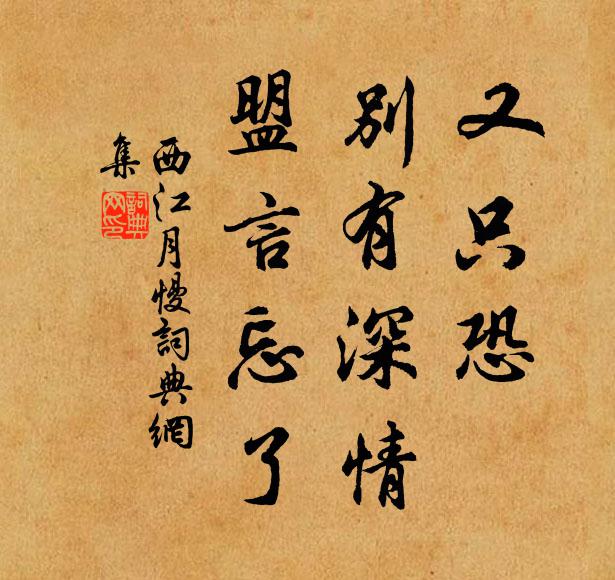 又只恐
別有深情
盟言忘了
西江月慢詞典網
集
詞典
网印